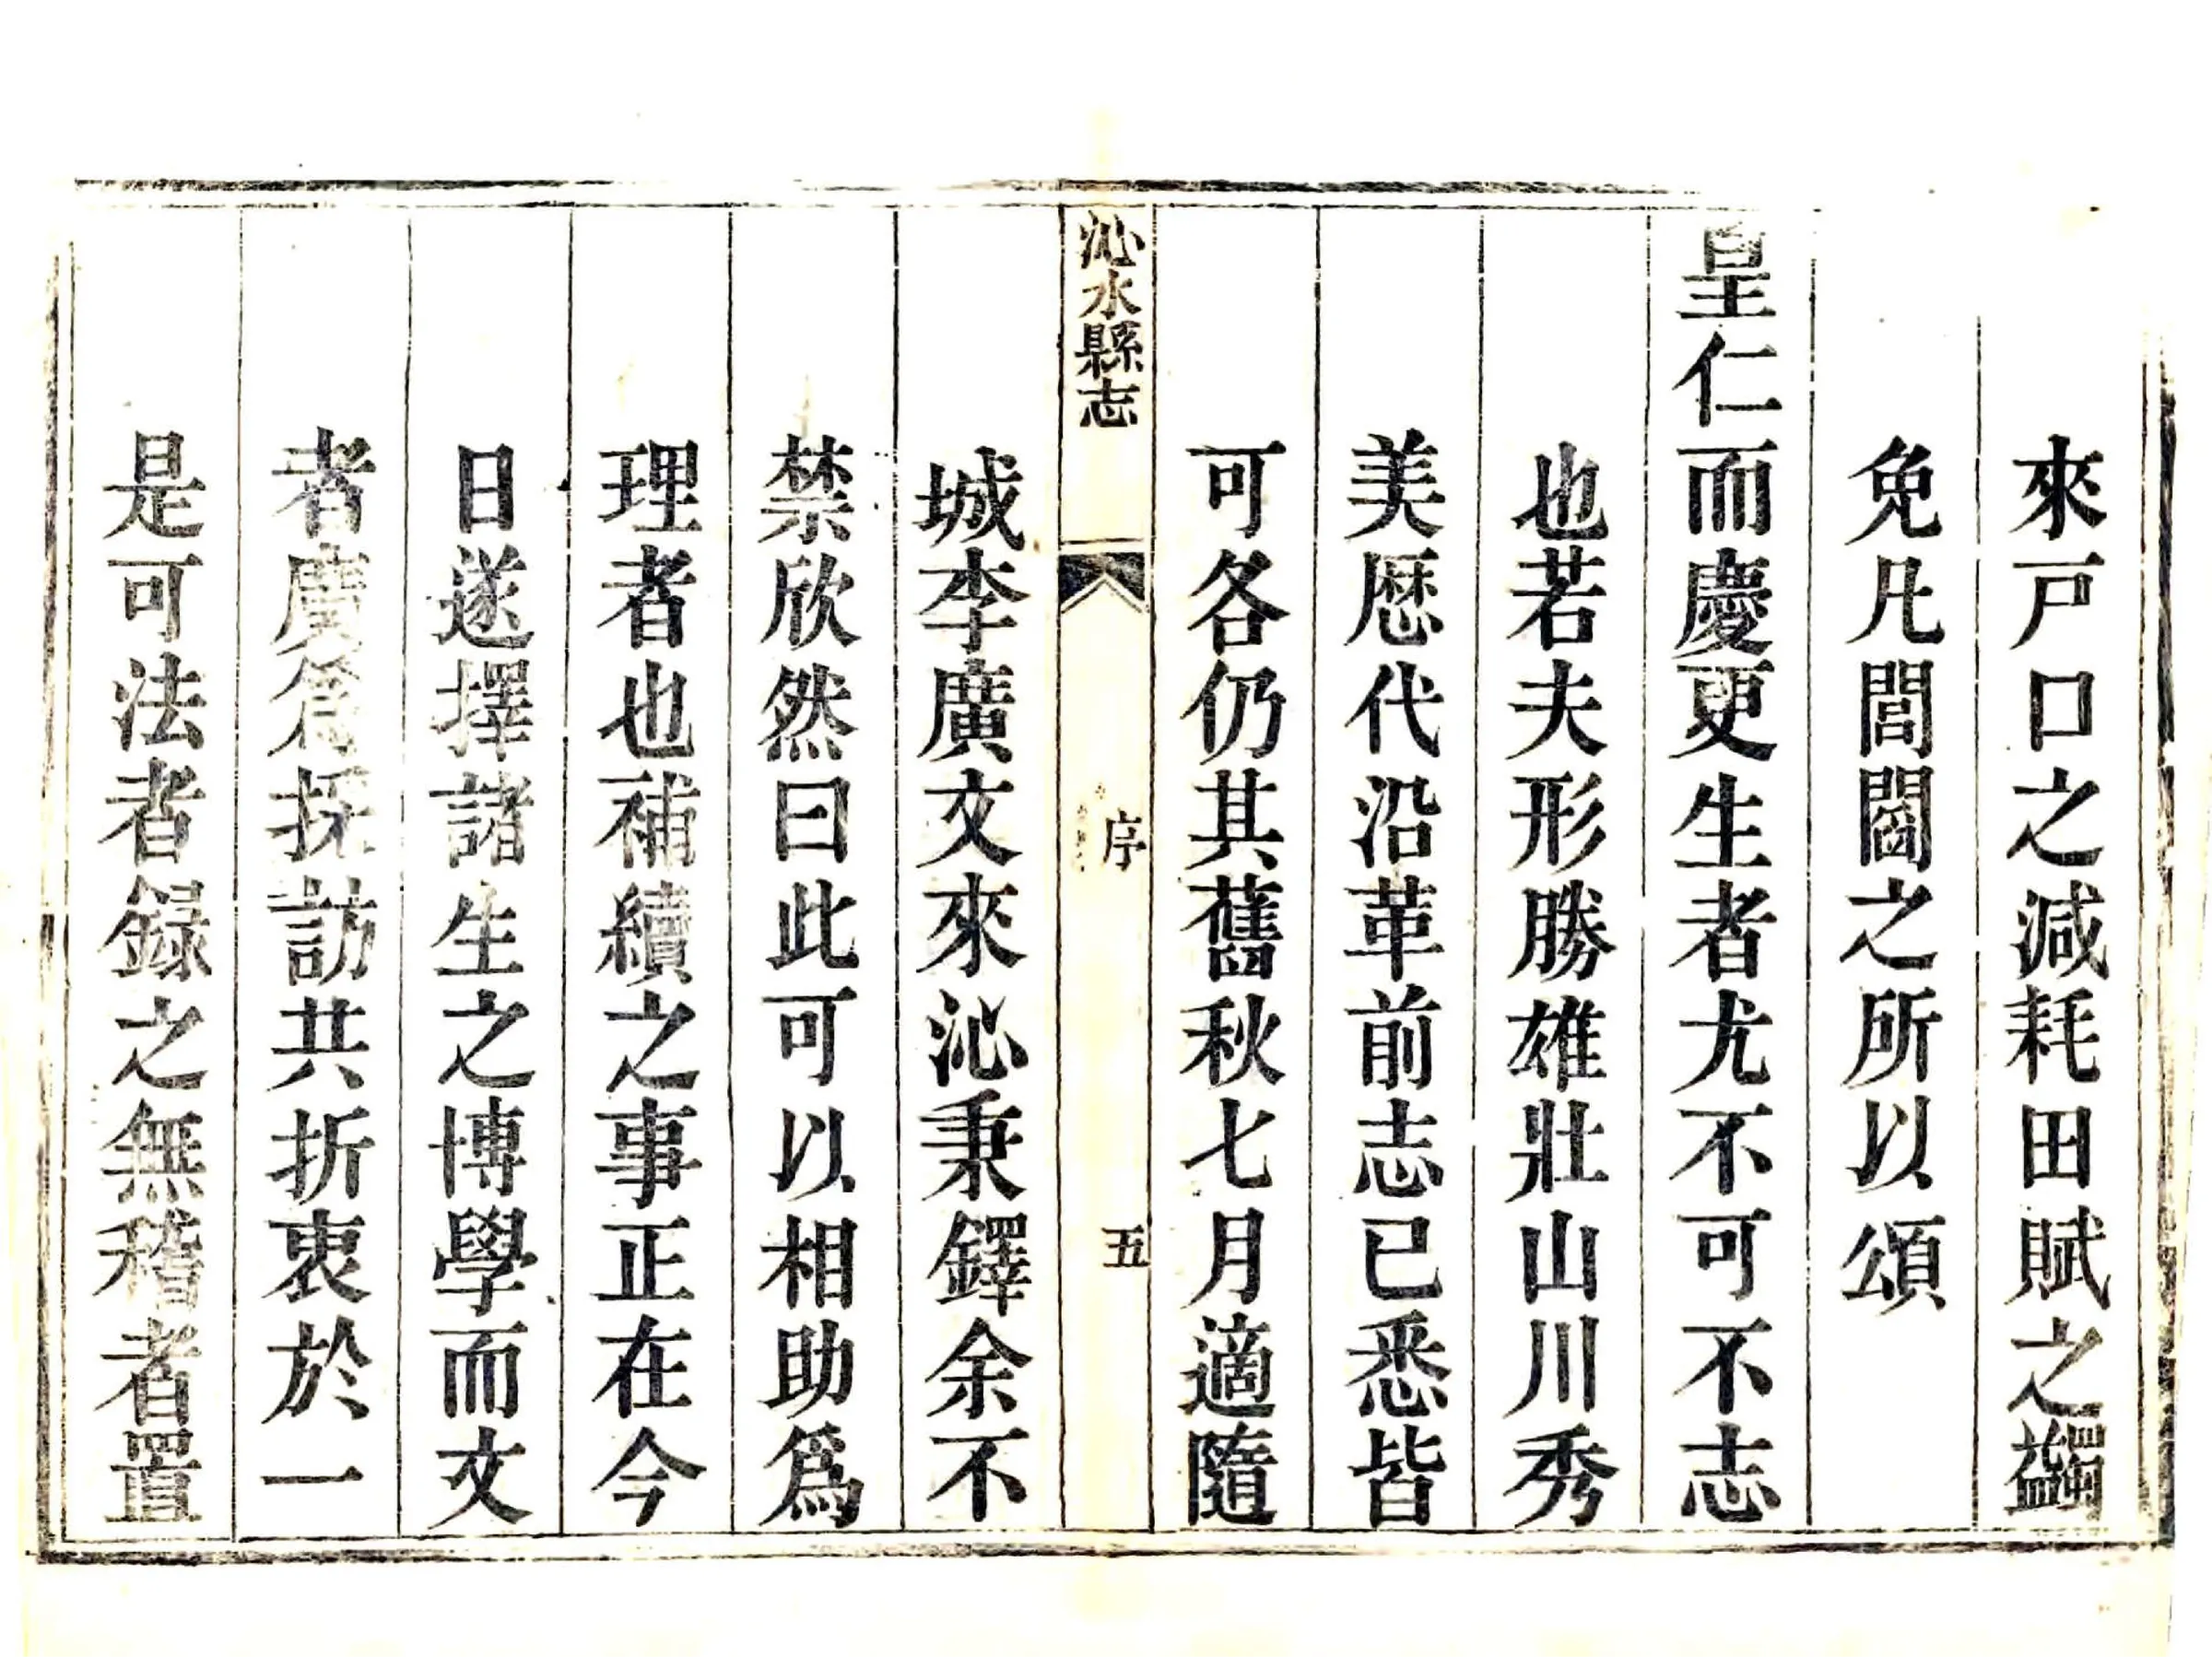 來戸口之減耗田賦之蠲
免凡閭閻之所以頌
皇仁而慶更生者尤不可不志
也若夫形勝雄壯山川秀
美歴代沿革前志已悉皆
可各仍其舊秋七月適隨
沁水縣志
序
五
城李廣文來沁秉鐸余不
禁欣然曰此可以相助爲
理者也補續之事正在今
日遂擇諸生之博學而文
者廣爲採訪共折衷於一
是可法者録之無稽者置